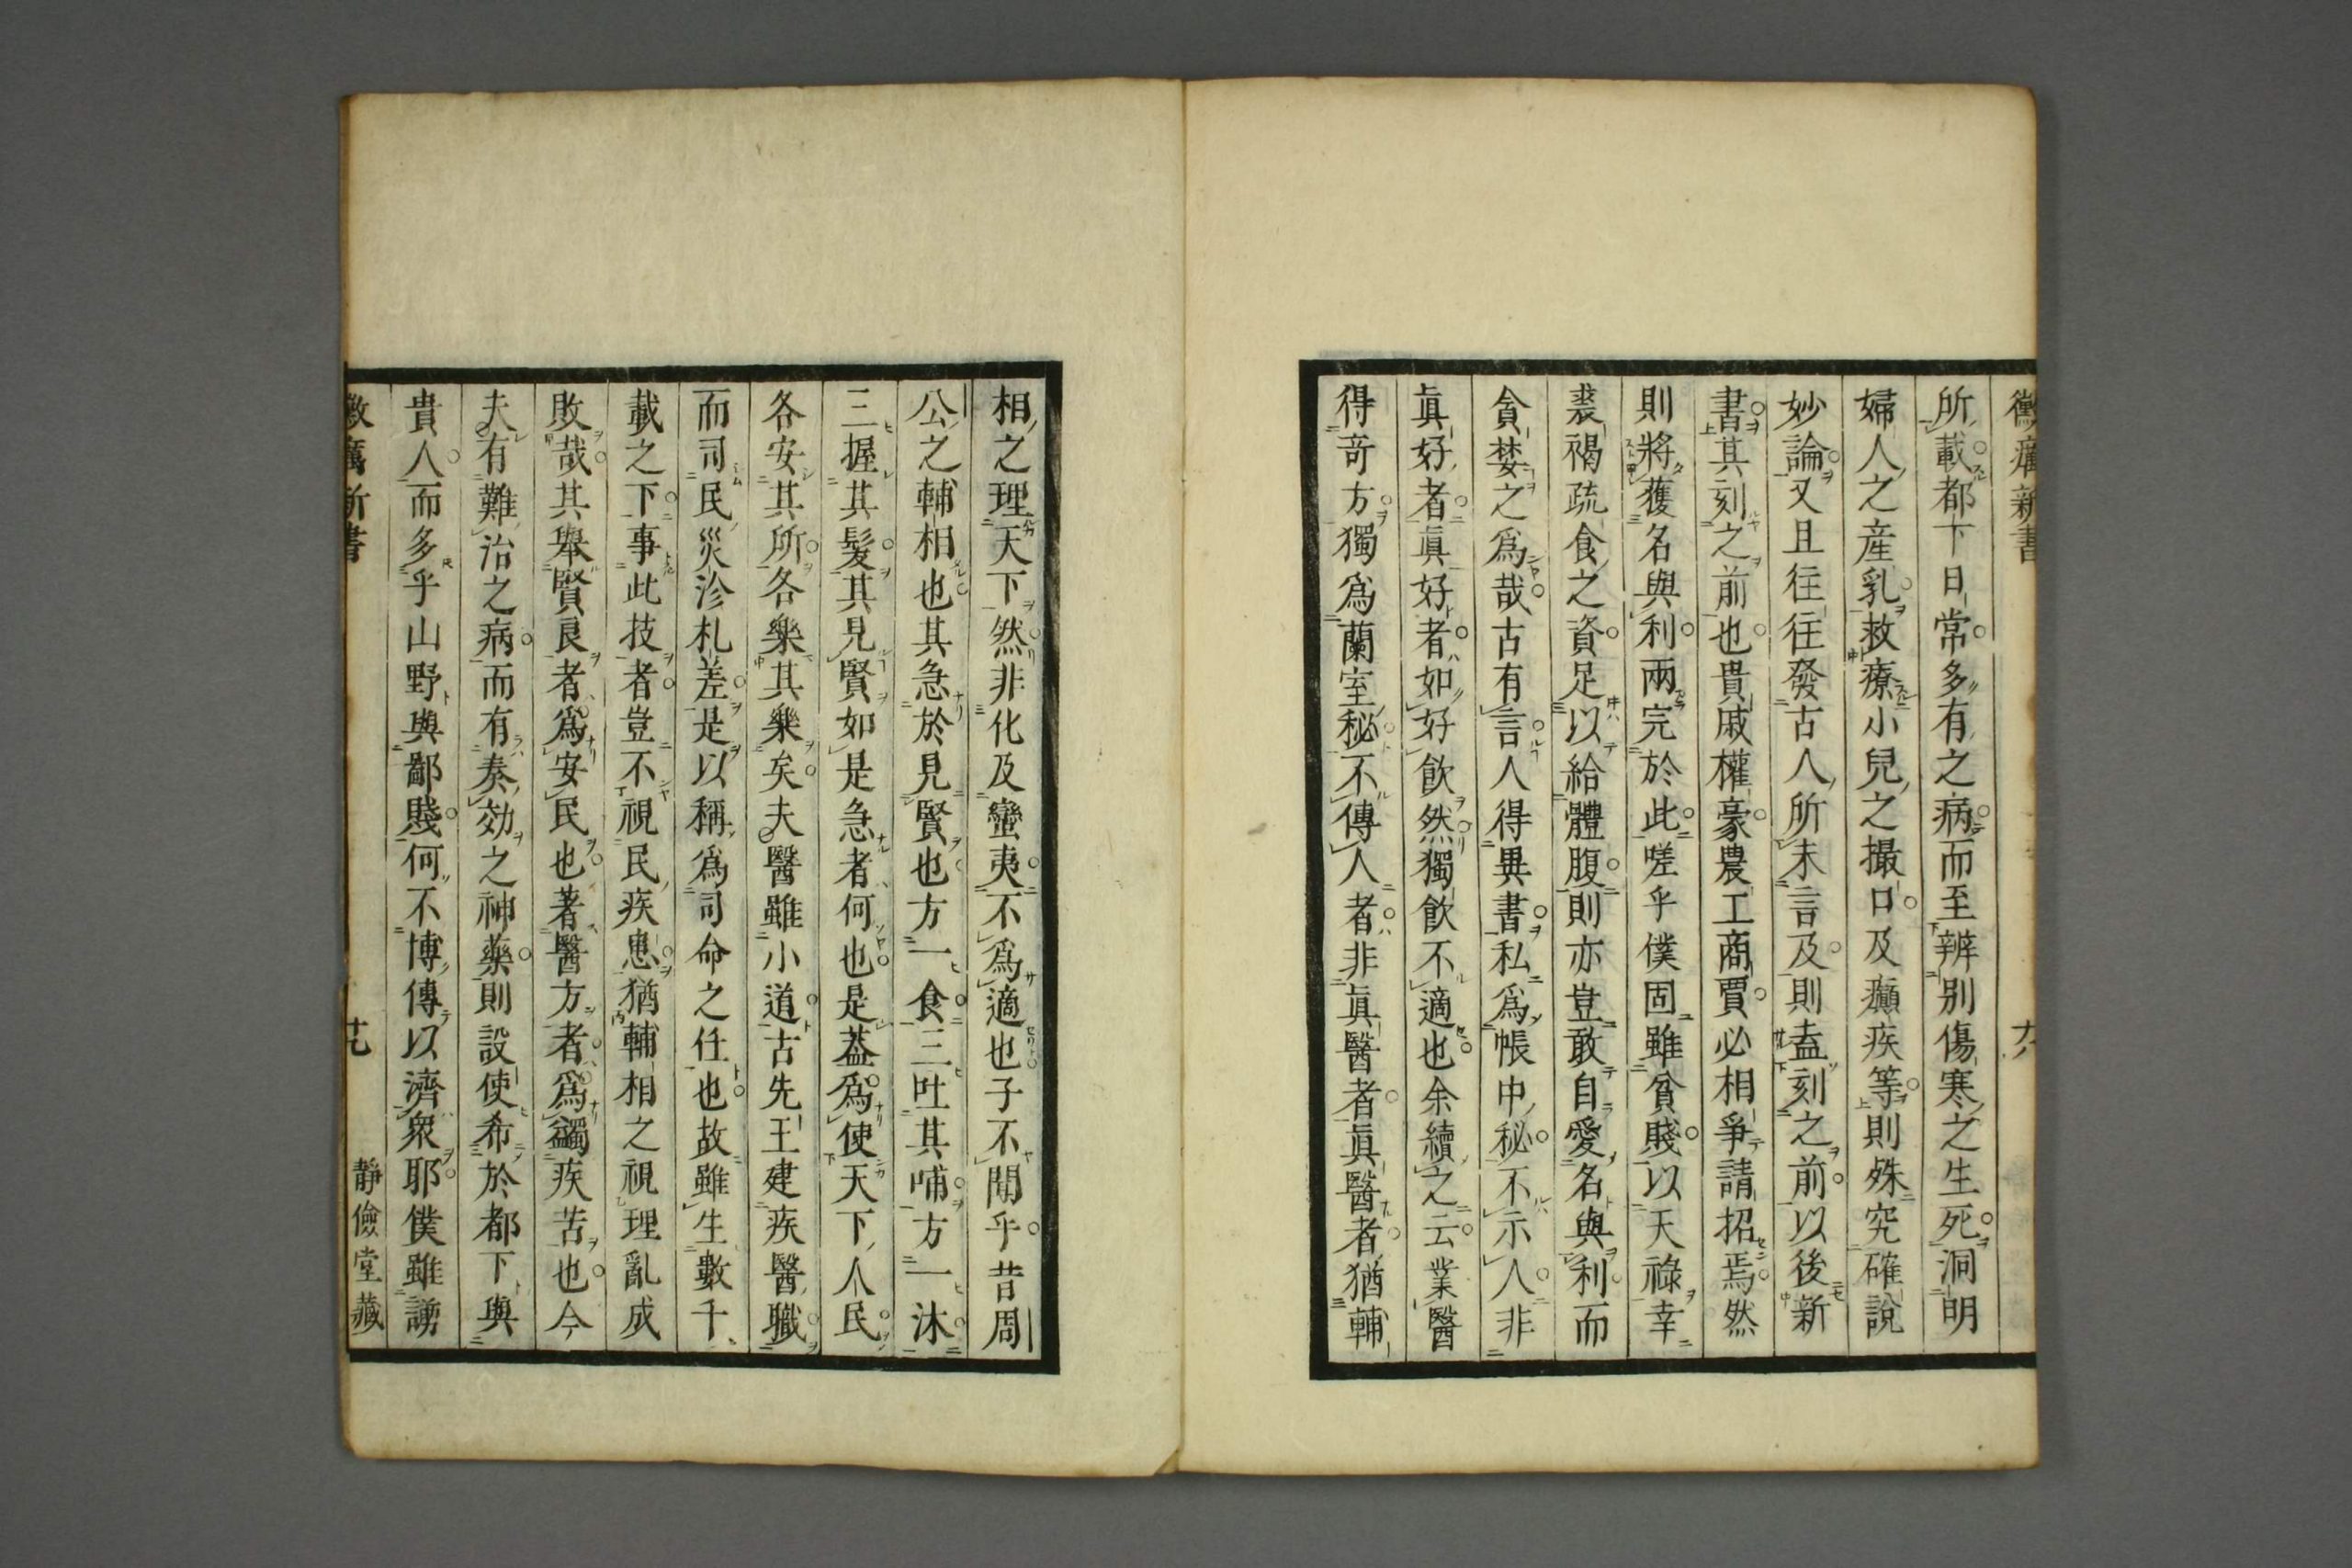 黴癘新書 六
所載都下日常多有之病而至辨別傷寒之生死洞明
婦人之産乳救療小兒之撮口及癲疾等則殊究確說
妙論又且往往發古人所未言及則盍刻之前以後新
書其刻之前也貴戚權豪農工商賈必相爭請招焉然
則將獲名與利兩完於此嗟乎僕固雖貧賤以天祿幸
裘褐疏食之資足以給體腹則亦豈敢自愛名與利而
貪婪之爲哉古有言人得異書私爲帳中秘不示人非
眞好者眞好者如好飲然獨飲不適也余續之云業醫
得奇方獨爲蘭室秘不傳人者非眞醫者眞醫者猶輔
相之理天下然非化及蠻夷不爲適也子不聞乎昔周
公之輔相也其急於見賢也方一食三吐其哺方一沐
三握其髮其見賢如是急者何也是蓋爲使天下人民
各安其所各樂其樂矣夫醫雖小道古先王建疾醫職
而司民災沴札差是以稱爲司命之任也故雖生數千
載之下事此技者豈不視民疾患猶輔相之視理亂成
敗哉其舉賢良者爲安民也著醫方者爲蠲疾苦也今
夫有難治之病而有奏効之神藥則設使希於都下與
貴人而多乎山野與鄙賤何不博傳以濟衆耶僕雖謭
新書 靜儉堂藏